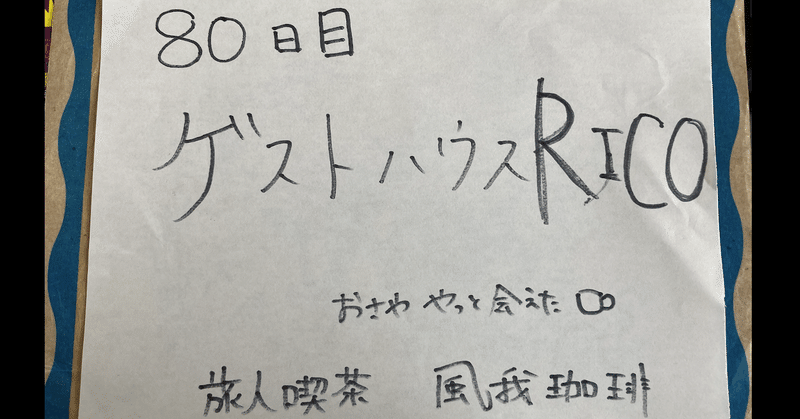 80日目
ゲストハウスRICO
おさわ やっと会えた
旅人喫茶 風我珈琲